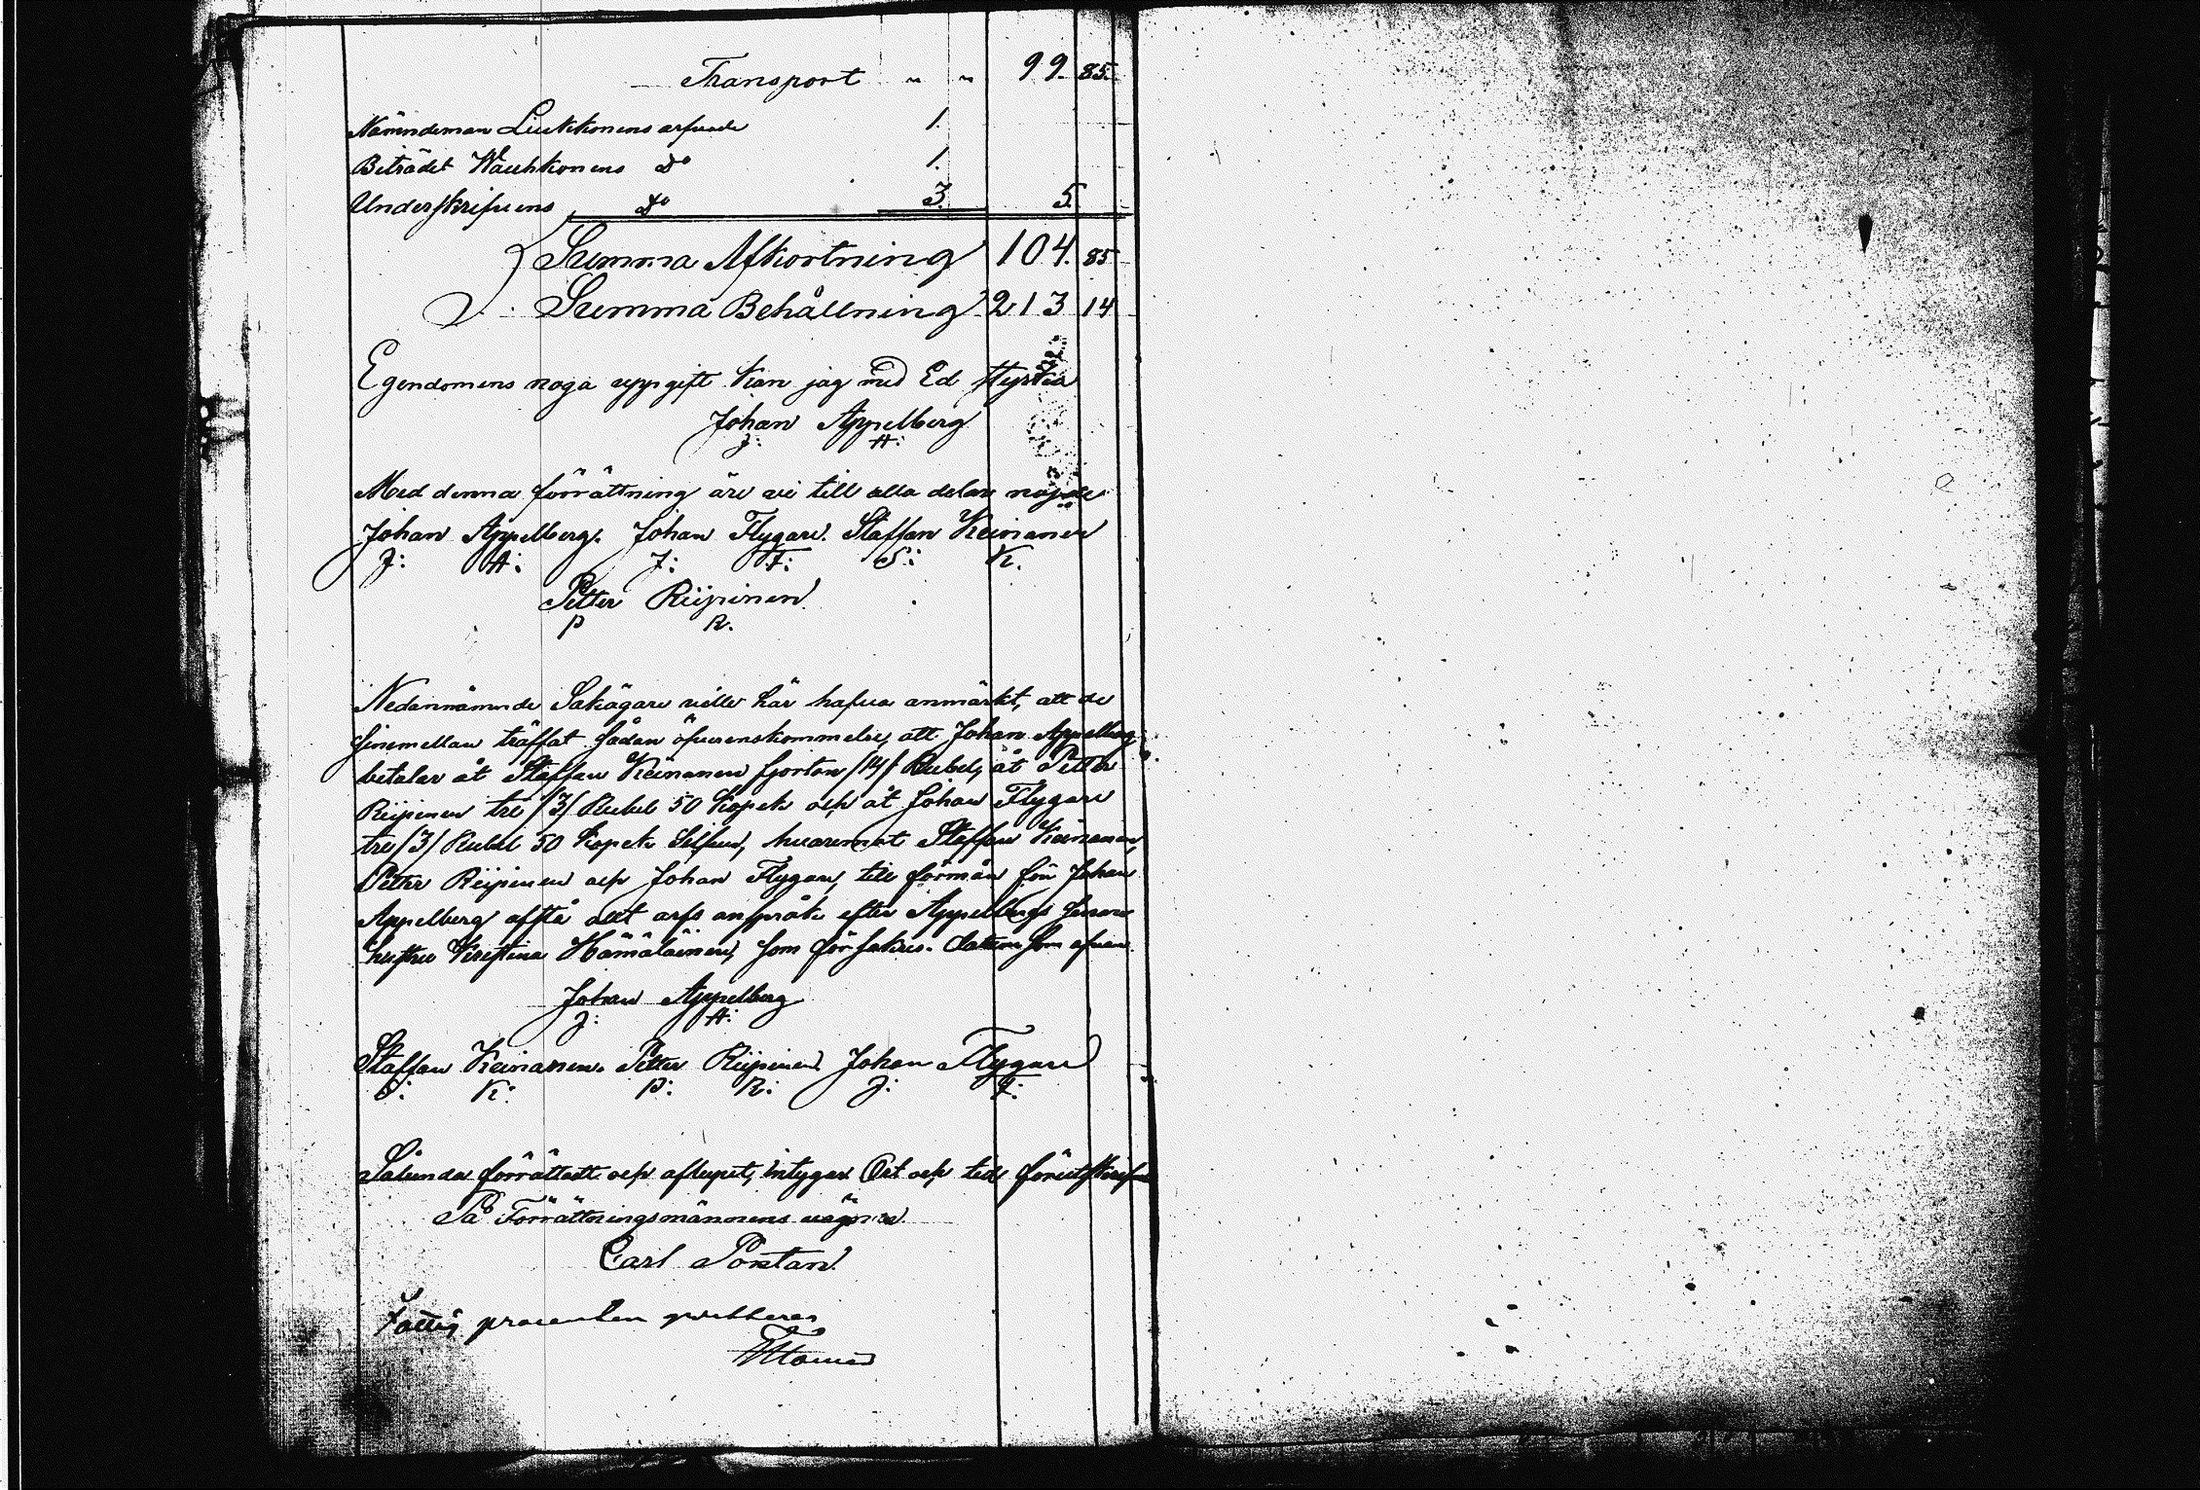 Transport " " 99. 85.
Nämndeman Liukkonens arfvode 1.
Biträdet Wauhkonens Do 1.
Underskrifvens Do 3. 5.
Summa Afkortning 104. 85
Summa Behållning 213 14
Egendomens noga uppgift kan jag med Ed styrka
Johan Appelberg
J: A:
Med denna förrättning äre vi till alla delar nöjde
Johan Appelberg. Johan Flygare. Staffan Keinanen
J: A: J: F: S: K.
Petter Riipinen
P R.
Nedannämnde Sakägare ville här hafva anmärkt, att de
sinsemellan träffat sådan öfverenskommelse, att Johan Appelberg
betalar åt Staffan Keinanen fjorton /14/ Rubel, åt Petter
Riipinen tre /3/ Rubel 50 Kopek och åt Johan Flygare
tre /3/ Rubel 50 Kopek Silfver, hvaremot Staffan Keinanen,
Petter Riipinen och Johan Flygare, till förmån för Johan
Appelberg afstå allt arfs anspråk efter Appelbergs
hustru Kristina Hämäläinen, som försäkres. Datum som ofvan.
Johan Appelberg
J: A:
Staffan Keinanen. Petter Riipinen Johan Flygare
S: K: P: R: J: F:
Sålunda förrättadt och aflupet, intygar Ort och tid förutskrefne
På Förrättningsmännens vägnar
Carl Pontan
Fattig procenten qvitteras